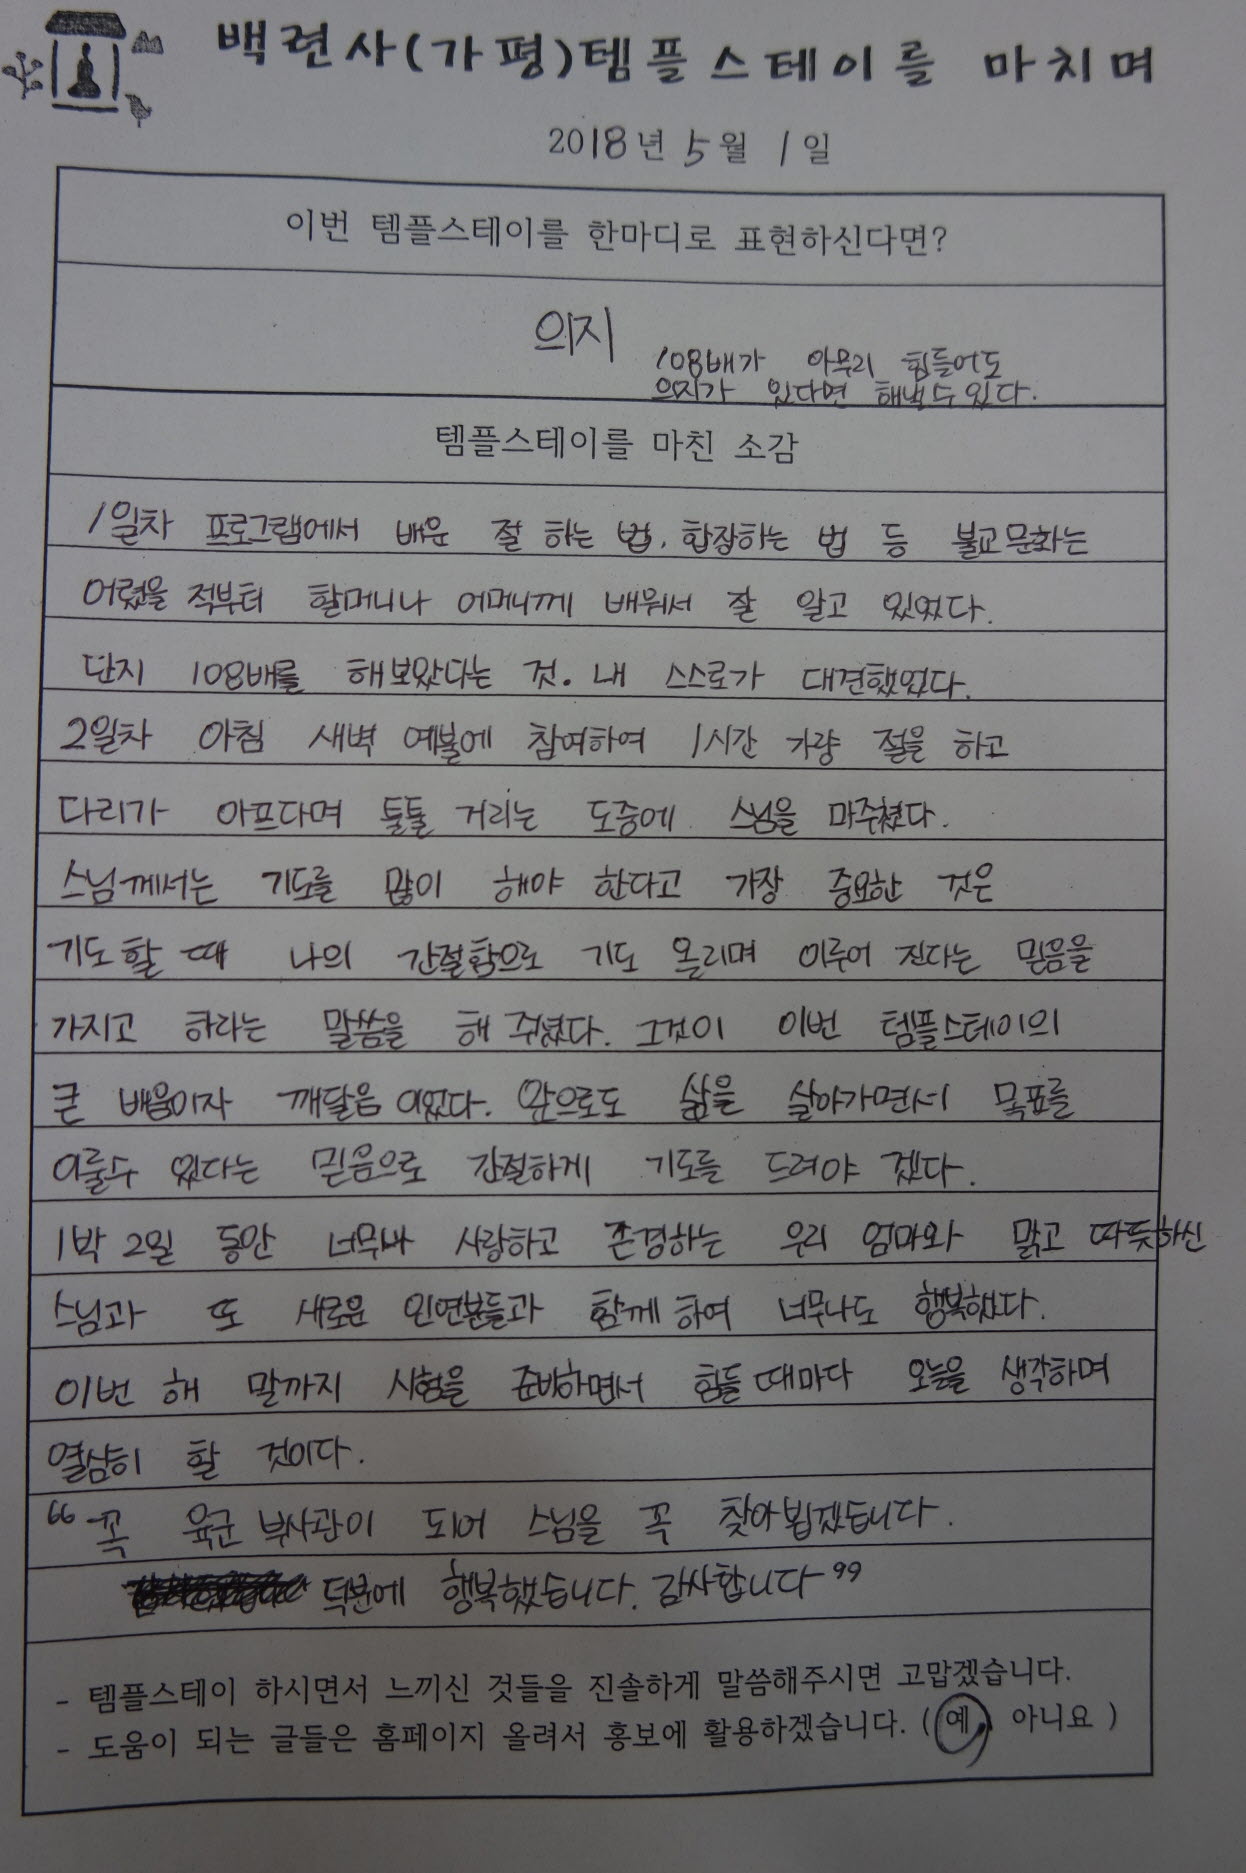 백련사(가평)템플스테이를 마치며
2018년 5월 1일
이번 템플스테이를 한마디로 표현하신다면?
의지
108배가 아무리 힘들어도
의지가 있다면 해낼수있다.
템플스테이를 마친 소감
1일차 프로그램에서 배운 절 하는 법, 합장하는 법 등 불교문화는
어렸을 적부터 할머니나 어머니께 배워서 잘 알고 있었다.
단지 108배를 해보았다는 것. 내 스스로가 대견했었다.
2일차 아침 새벽 예불에 참여하여 1시간 가량 절을 하고
다리가 아프다며 툴툴 거리는 도중에 스님을 마주쳤다.
스님께서는 기도를 많이 해야 한다고 가장 중요한 것은
기도할 때 나의 간절함으로 기도 올리며 이루어 진다는 믿음을
가지고 하라는 말씀을 해 주셨다. 그것이 이번 템플스테이의
큰 배움이자 깨달음 이었다. 앞으로도 삶을 살아가면서 목표를
이룰수 있다는 믿음으로 간절하게 기도를 드려야 겠다.
1박 2일 동안 너무나 사랑하고 존경하는 우리 엄마와 맑고 따뜻하신
스님과 또 새로운 인연분들과 함께하여 너무나도 행복했다.
이번 해 말까지 시험을 준비하면서 힘들 때마다 오늘을 생각하며
열심히 할 것이다.
“ 꼭 육군 부사관이 되어 스님을 꼭 찾아뵙겠습니다.
덕분에 행복했습니다. 감사합니다 ”
- 템플스테이 하시면서 느끼신 것들을 진솔하게 말씀해주시면 고맙겠습니다.
- 도움이 되는 글들은 홈페이지 올려서 홍보에 활용하겠습니다. ( 예, 아니요 )